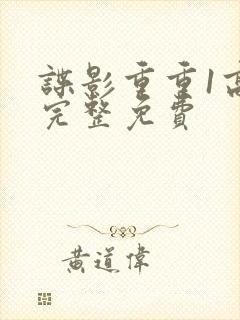 諜影重重1高
完整免費
黃道偉